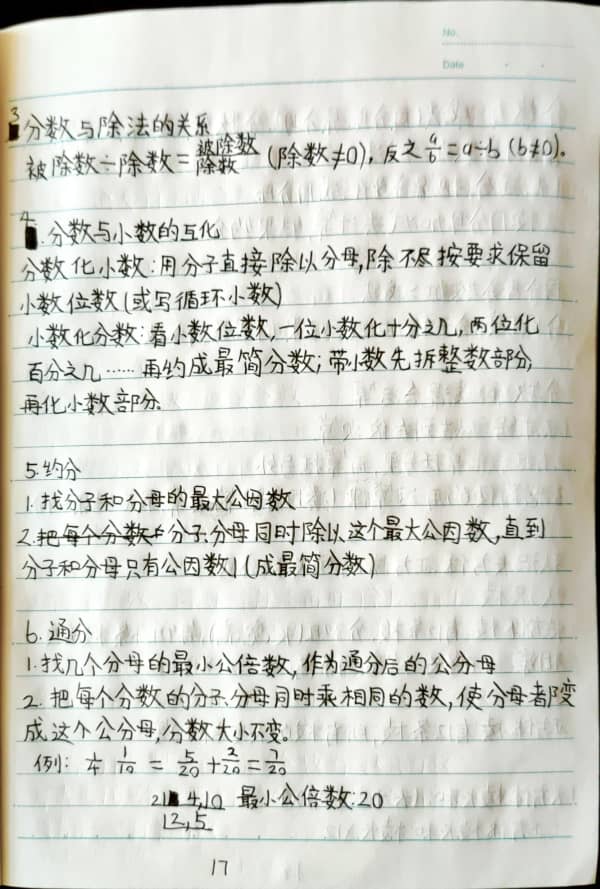 No.
Date
3
分数与除法的关系
被除数÷除数=被除数/除数 (除数≠0), 反之a/b=a÷b (b≠0)。
4.分数与小数的互化
分数化小数:用分子直接除以分母,除不尽按要求保留
小数位数(或写循环小数)
小数化分数:看小数位数,一位小数化十分之几,两位化
百分之几……再约成最简分数;带小数先拆整数部分,
再化小数部分.
5.约分
1.找分子和分母的最大公因数
2.把每个分数 分子.分母同时除以这个最大公因数,直到
分子和分母只有公因数1(成最简分数)
6.通分
1.找几个分母的最小公倍数,作为通分后的公分母
2.把每个分数的分子.分母同时乘相同的数,使分母都变
成这个公分母,分数大小不变。
例: 1/10 = 5/20+2/20=7/20
2 4,10 最小公倍数:20
2,5
17